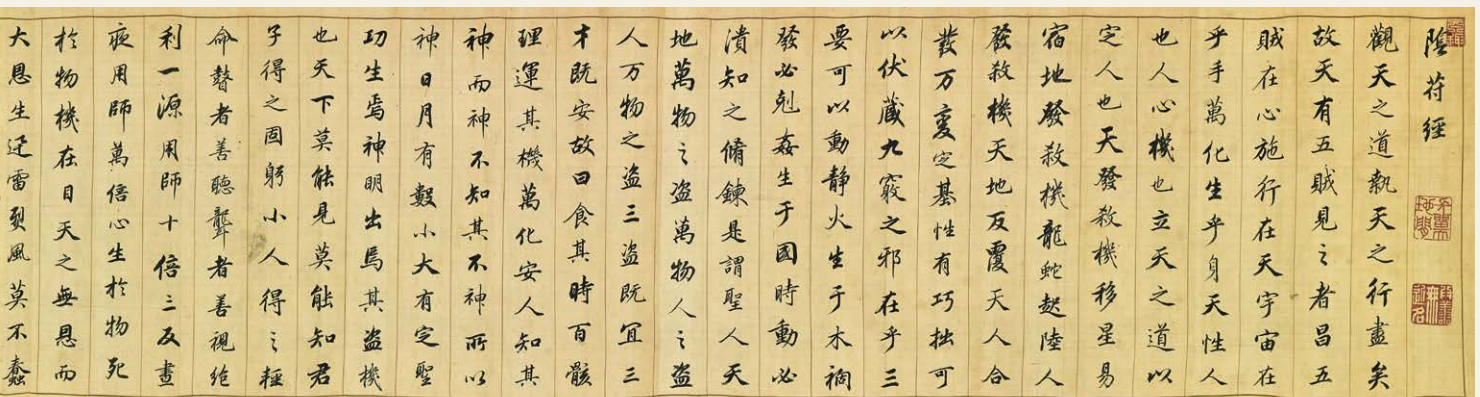 陰符經
觀天之道執天之行盡矣
故天有五賊見之者昌五
賊在心施行在天宇宙在
乎手萬化生乎身天性人
也人心機也立天之道以
定人也天發殺機移星易
宿地發殺機龍蛇起陸人
發殺機天地反覆天人合
發万變定基性有巧拙可
以伏藏九竅之邪在乎三
要可以動静火生于木禍
發必剋姦生于國時動必
潰知之脩鍊是謂聖人天
地萬物之盗萬物人之盗
人万物之盗三盗既宜三
才既安故曰食其時百骸
理運其機萬化安人知其
神而神不知其不神所以
神日月有數小大有定聖
功生焉神明出焉其盗機
也天下莫能見莫能知君
子得之固躬小人得之輕
命瞽者善聽聾者善視絶
利一源用師十倍三反晝
夜用師萬倍心生於物死
於物機在目天之無恩而
大恩生迅雷烈風莫不蠢